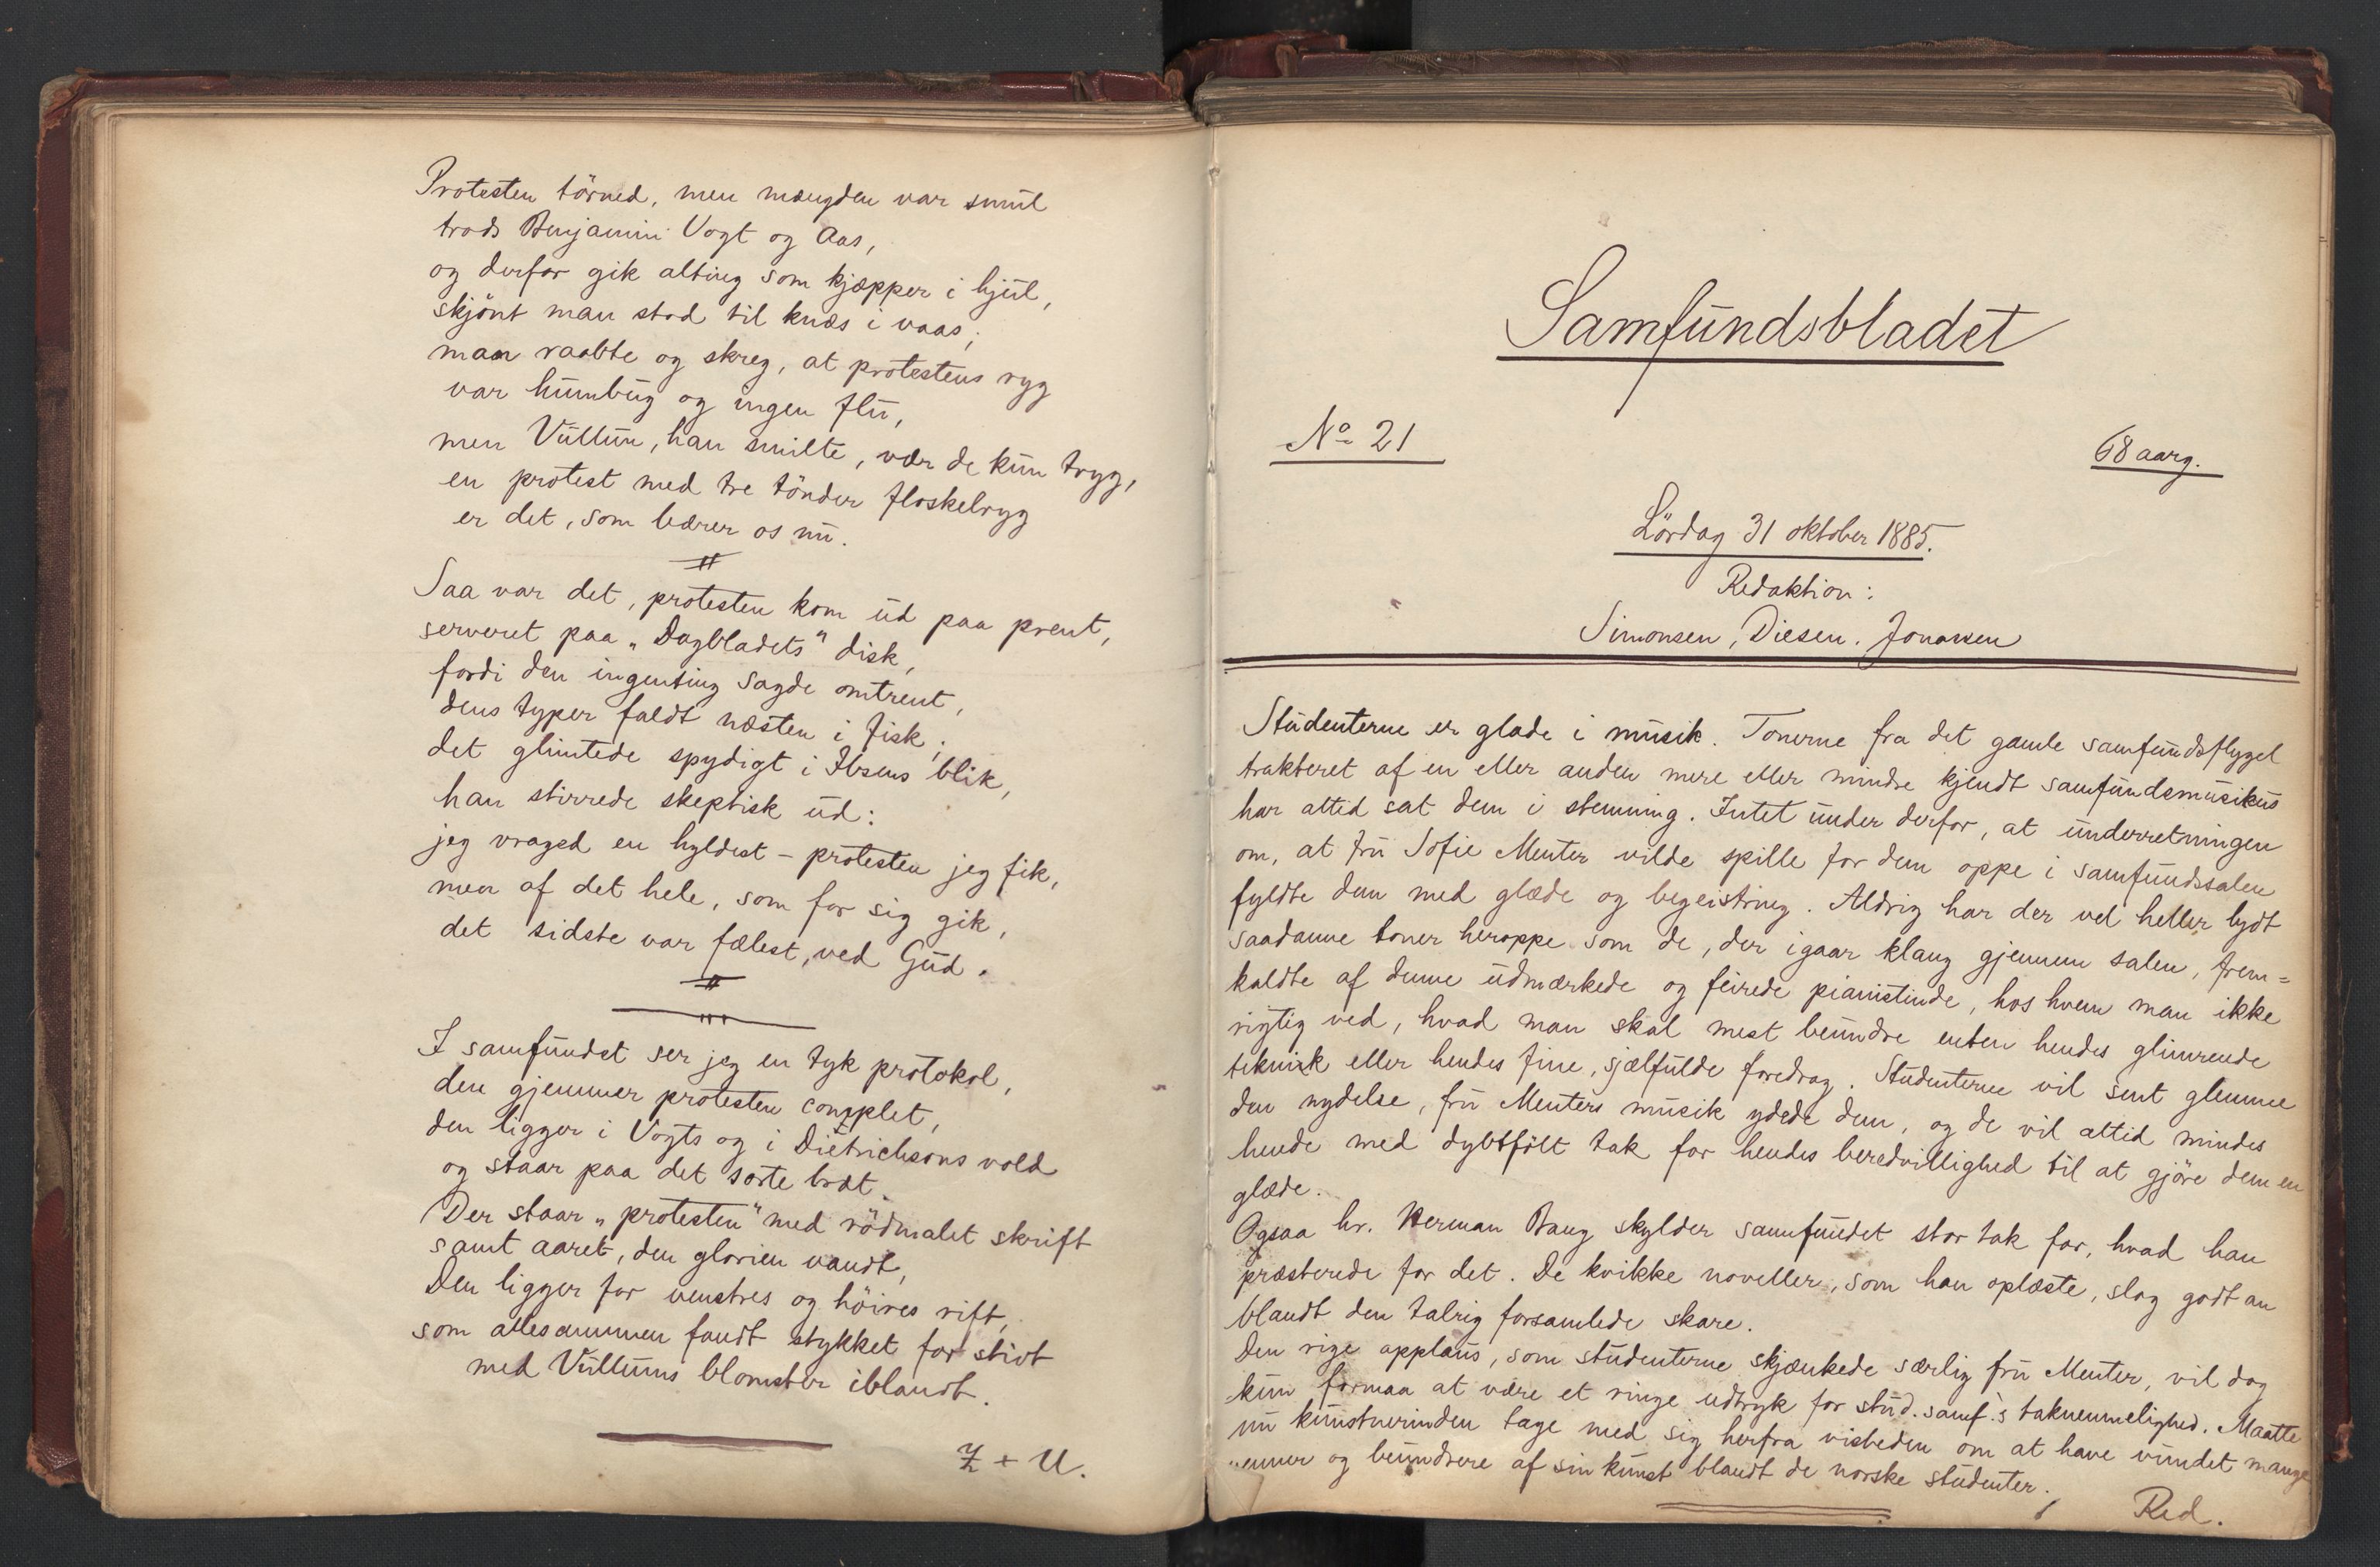 Protesten törned, men mængden var smul
trods Benjamin Vogt og Aas,
og derfor gik alting som kjæpper i hjul,
skjönt man stod til knæs i vaas;
man raabte og skreg, at protestens ryg
var humbug og ingen flu,
men Vullum, han smilte, vær de kun tryg,
en protest med tre tönder floskelryg
er det, som bærer os nu.
Saa var det, protesten kom ud paa prent,
serveret paa „Dagbladets" disk,
fordi den ingenting sagde omtrent,
dens typer faldt næsten i fisk;
det glimtede spydigt i Ibsens blik,
han stirrede skeptisk ud:
jeg vraged en hyldest – protesten jeg fik,
men af det hele, som for sig gik,
det sidste var fælest, ved Gud.
I samfundet ser jeg en tyk protokol,
den gjemmer protesten complet,
den ligger i Vogts og i Dietrichsons vold
og staar paa det sorte bræt.
Der staar „protesten" med rödmalet skrift
samt aaret, den glorien vandt,
Den ligger for venstres og höires rift,
som allesammen fandt stykket for stivt
med Vullums blomster iblandt.
Z + U.
Samfundsbladet
No 21
68 aarg.
Lördag 31 oktober 1885.
Redaktion:
Simonsen, Diesen. Jonassen
Studenterne er glade i musik. Tonerne fra det gamle samfundsflygel
trakteret af en eller anden mere eller mindre kjendt samfundsmusikus
har altid sat dem i stemning. Intet under derfor, at underretningen
om, at fru Sofie Menter vilde spille for dem oppe i samfundssalen
fyldte dem med glæde og begeistring. Aldrig har der vel heller lydt
saadanne toner heroppe som de, der igaar klang gjennem salen, frem=
kaldte af denne udmærkede og feirede pianistinde, hos hvem man ikke
rigtig ved, hvad man skal mest beundre enten hendes glimrende
teknik eller hendes fine, sjælfulde foredrag. Studenterne vil sent glemme
den nydelse, fru Menters musik ydede dem, og de vil altid mindes
hende med dybtfölt tak for hendes beredvillighed til at gjöre dem en
glæde.
Ogsaa hr. Herman Bang skylder samfundet stor tak for, hvad han
præsterede for det. De kvikke noveller, som han oplæste, slog godt an
blandt den talrig forsamlede skare.
Den rige applaus, som studenterne skjænkede særlig fru Menter, vil dog
kun formaa at være et ringe udtryk for stud. samf.'s taknemmelighed. Maatte
nu kunstnerinden tage med sig herfra visheden om at have vundet mange
venner og beundrere af sin kunst blandt de norske studenter.
Red.